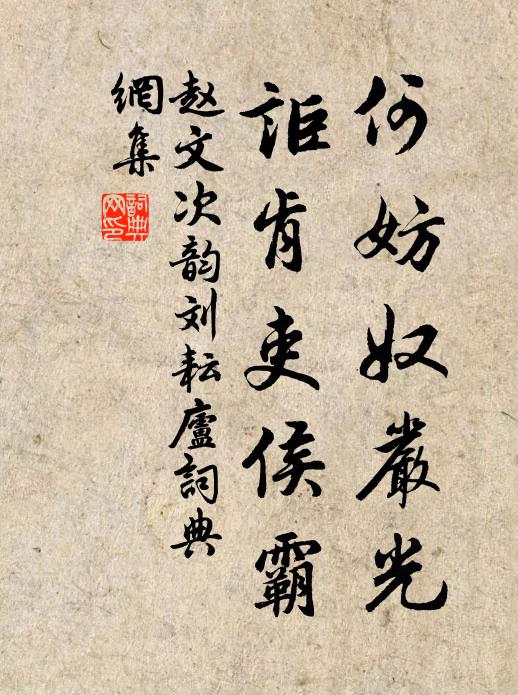 何妨奴嚴光
詎肯吏侯霸
赵文次韵刘耘廬詞典
網集
詞典
网印